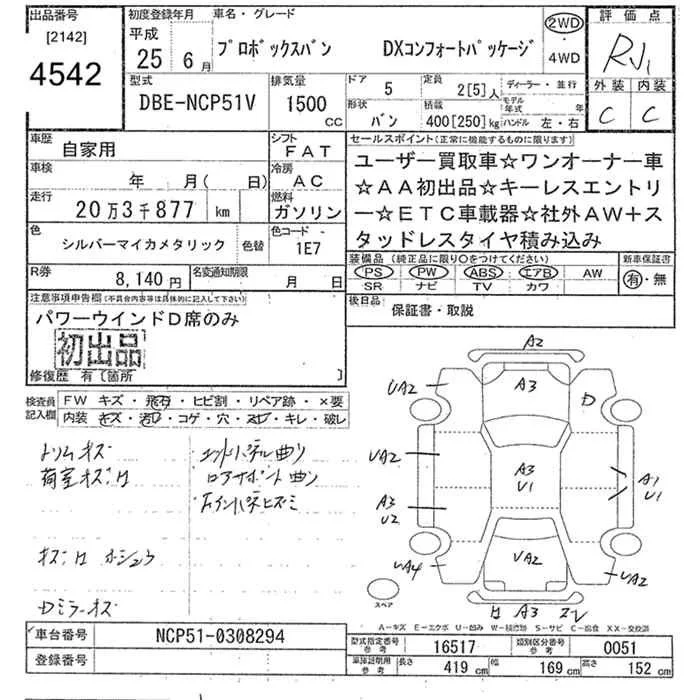 出品番号 初度登録年月 車名・グレード 2WD 評価点
[2142] 平成 4WD
4542 25年 6月 プロボックスバン DXコンフォートパッケージ
外装 内装
C C
型式 排気量 ドア 5 定員 2[5]人 ディーラー・並行
DBE-NCP51V 1500 CC 形状 バン 積載 400[250]kg モデル年式 年 ハンドル 左・右
車歴 自家用 シフト FAT
セールスポイント(正常に機能するものに限ります)
車検 年 月( 日) 冷房 AC
走行 20万3千877 km 燃料 ガソリン
ユーザー買取車☆ワンオーナー車
☆AA初出品☆キーレスエントリ
ー☆ETC車載器☆社外AW+ス
タッドレスタイヤ積み込み
色 シルバーマイカメタリック 色替 色コード 1E7
装備品(純正品に限り○をつけてください) 新車保証書
PS PW ABS エアB AW 有・無
SR ナビ TV カワ
R券 8,140円 名変通知期限 月 日
後日品 保証書・取説
注意事項申告欄(不具合内容等は具体的に記入して下さい)
パワーウインドD席のみ
初出品
修復歴 有〔箇所 〕
検査員記入欄 FW キズ・飛石・ヒビ割・リペア跡・×要
内装 キズ・汚れ・コゲ・穴・スレ・キレ・破レ
トリムキズ
荷室キズ凹
コアサポート曲り
キズ凹 ホシュウ
Dミラーキズ
A2
UA2 A3 D
UA2 A3 U1 A1 U1
A3 U2
UA4 UA2 UA2
凹 A3
スペア
A-キズ E-エクボ U-凹み W-補修跡 S-サビ C-腐食 XX-交換済
車台番号 NCP51-0308294
登録番号
型式指定番号 参考 16517 類別区分番号 参考 0051
車庫証明用 参考 長さ 419 cm 幅 169 cm 高さ 152 cm